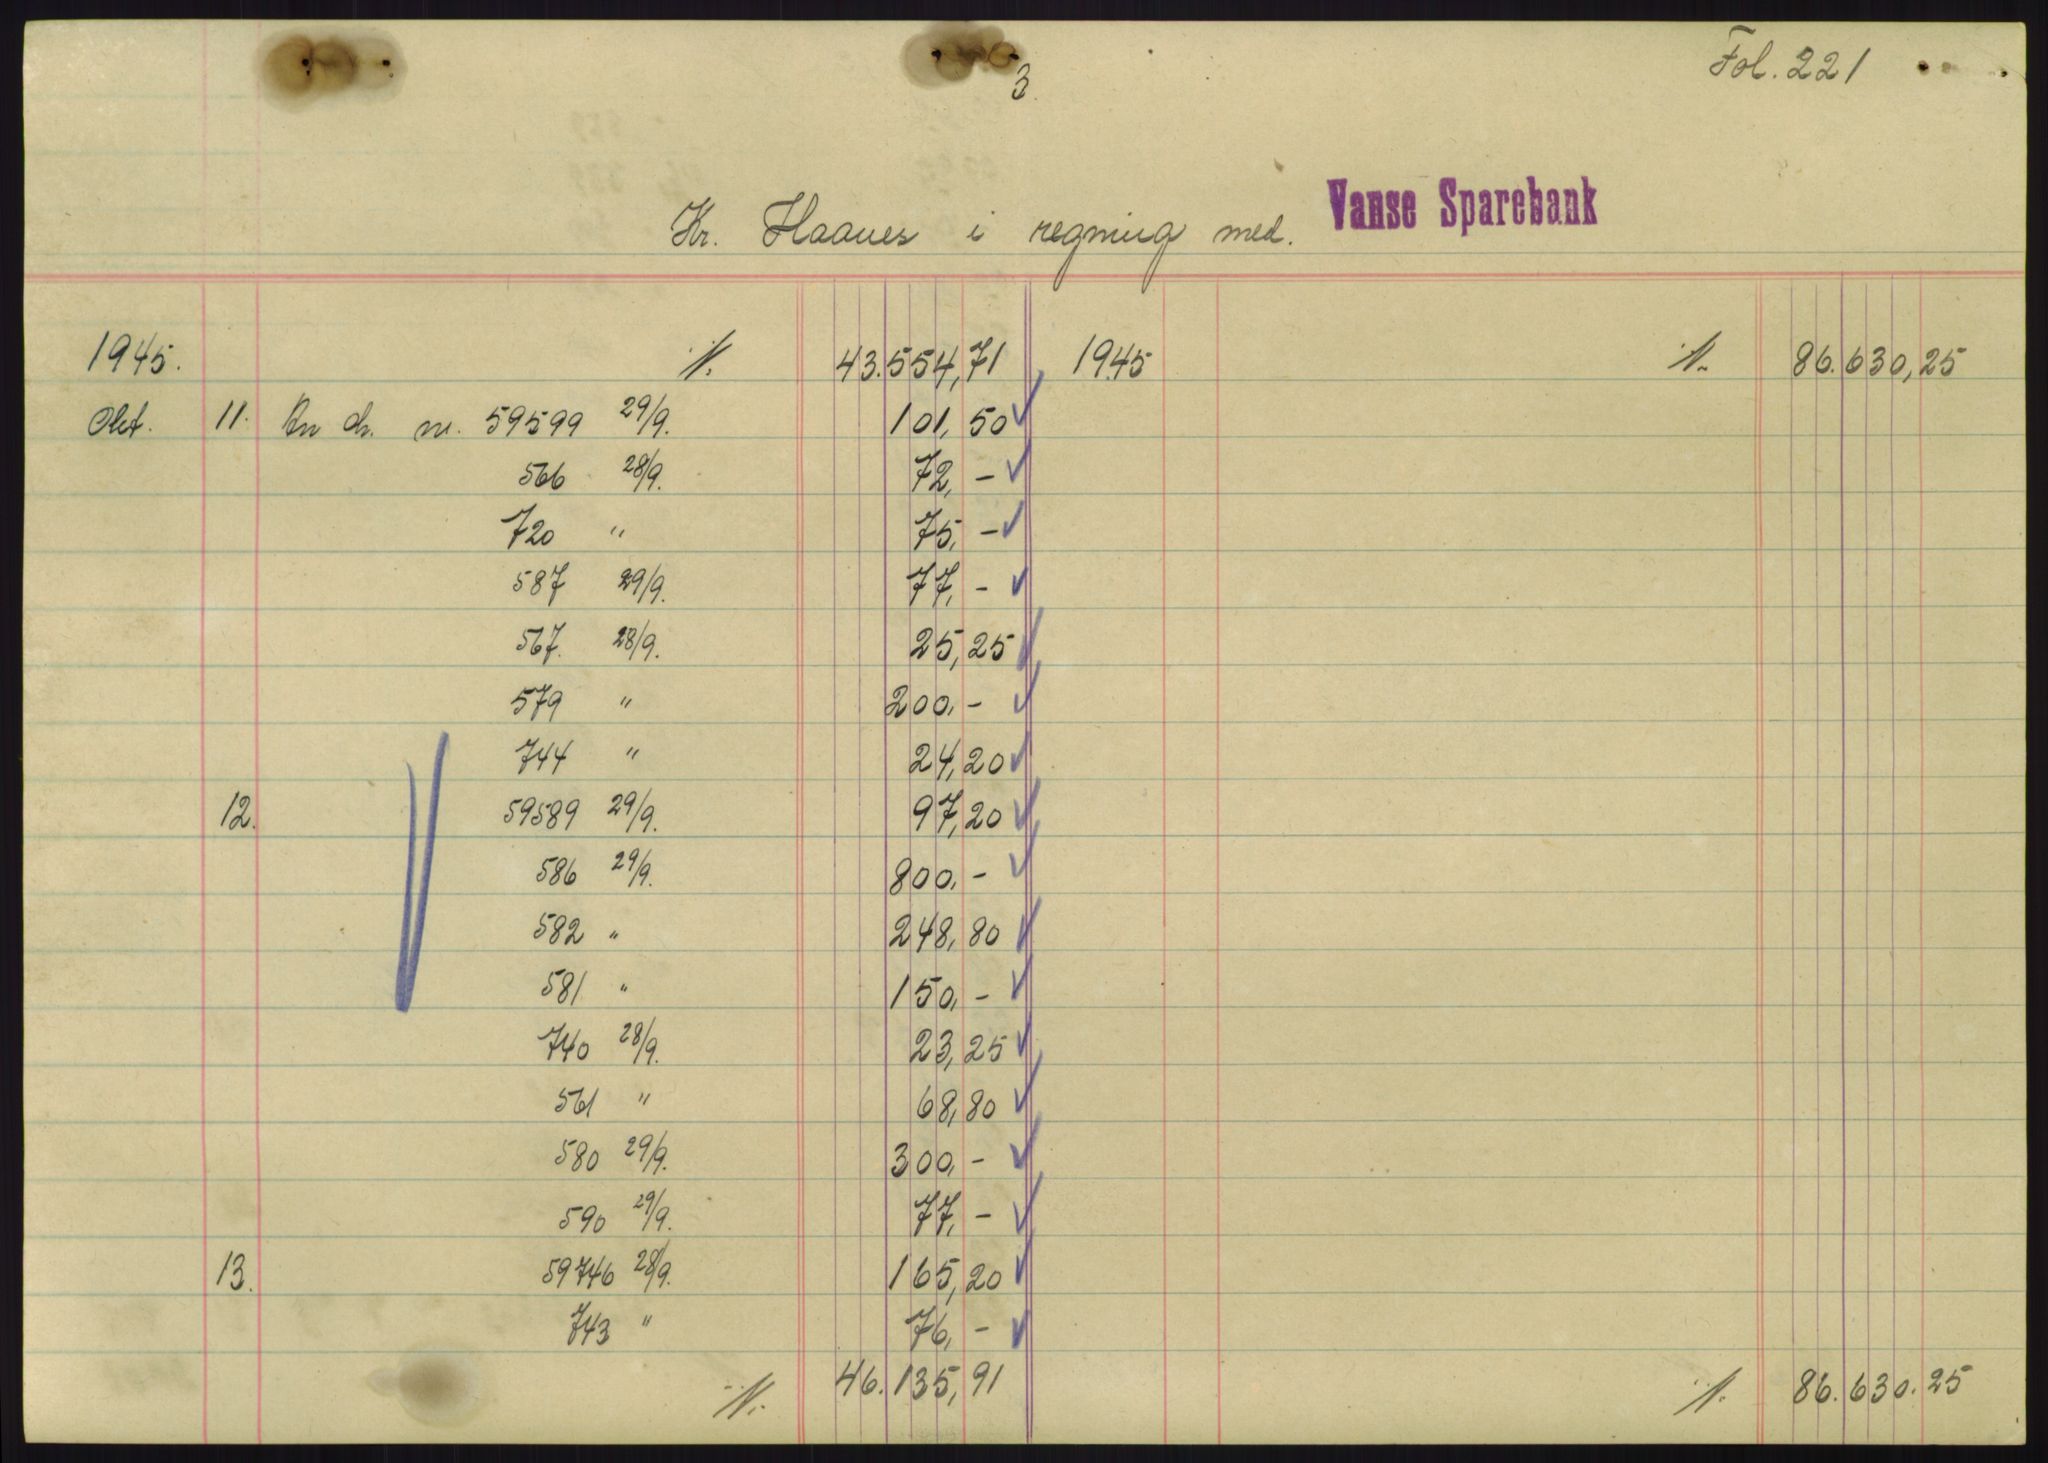 Fol. 221
3
Kr. Haanes i regning med. Vanse Sparebank
1945. 43.554,71 1945 86.630,25
Okt. 11. An ch. nr. 59599 29/9. 101,50
566 28/9. 72,-
720 " 75,-
587 29/9. 77,-
567. 28/9. 25,25
579 " 200,-
744 " 24,20
12. 59589 29/9. 97,20
586 29/9. 800,-
582 " 248,80
581 " 150,-
740 28/9. 23,25
561 " 68,80
580 29/9. 300,-
590 29/9. 77,-
13. 59746 28/9. 165,20
743 " 76,-
46.135,91 86.630.25